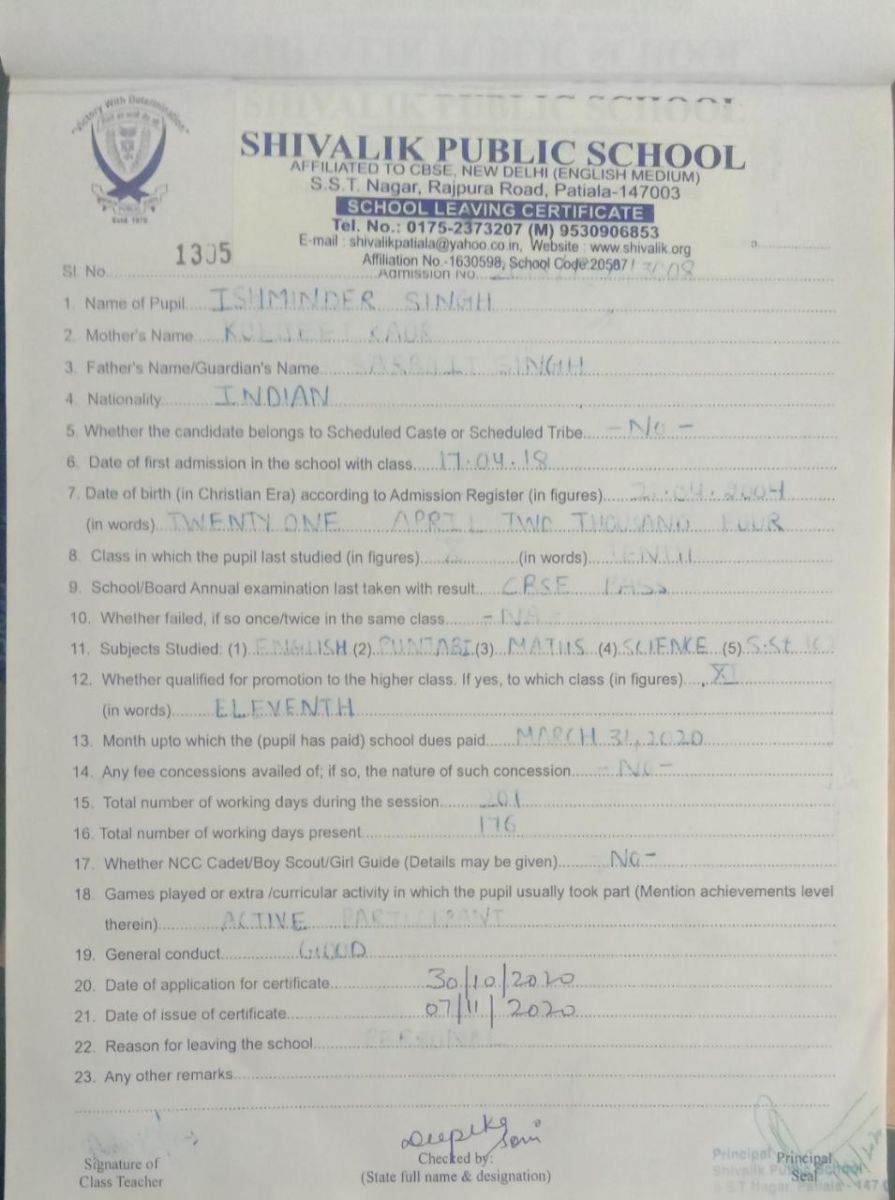 "Victory With Determination"
Estd. 1978
SHIVALIK PUBLIC SCHOOL
AFFILIATED TO CBSE, NEW DELHI (ENGLISH MEDIUM)
S.S.T. Nagar, Rajpura Road, Patiala-147003
SCHOOL LEAVING CERTIFICATE
Tel. No.: 0175-2373207 (M) 9530906853
E-mail : shivalikpatiala@yahoo.co.in, Website : www.shivalik.org
Affiliation No.-1630598, School Code 20587
Sl. No. 1305 Admission No.
1. Name of Pupil ISHMINDER SINGH
2. Mother's Name KULJEET KAUR
3. Father's Name/Guardian's Name SARBJIT SINGH
4. Nationality INDIAN
5. Whether the candidate belongs to Scheduled Caste or Scheduled Tribe -No-
6. Date of first admission in the school with class 17.04.18
7. Date of birth (in Christian Era) according to Admission Register (in figures) 21.04.2004
(in words) TWENTY ONE APRIL TWO THOUSAND FOUR
8. Class in which the pupil last studied (in figures) X (in words) TENTH
9. School/Board Annual examination last taken with result CBSE PASS
10. Whether failed, if so once/twice in the same class
11. Subjects Studied: (1) ENGLISH (2) PUNJABI (3) MATHS (4) SCIENCE (5) S.St
12. Whether qualified for promotion to the higher class. If yes, to which class (in figures) XI
(in words) ELEVENTH
13. Month upto which the (pupil has paid) school dues paid MARCH 31, 2020
14. Any fee concessions availed of; if so, the nature of such concession -No-
15. Total number of working days during the session 201
16. Total number of working days present 176
17. Whether NCC Cadet/Boy Scout/Girl Guide (Details may be given) No-
18. Games played or extra /curricular activity in which the pupil usually took part (Mention achievements level
therein) ACTIVE PARTICIPANT
19. General conduct GOOD
20. Date of application for certificate 30/10/2020
21. Date of issue of certificate 07/11/2020
22. Reason for leaving the school PERSONAL
23. Any other remarks
Deepika Soni
Signature of
Class Teacher
Checked by:
(State full name & designation)
Principal
Seal
Principal
Shivalik Public School
S S T Nagar, Patiala - 147